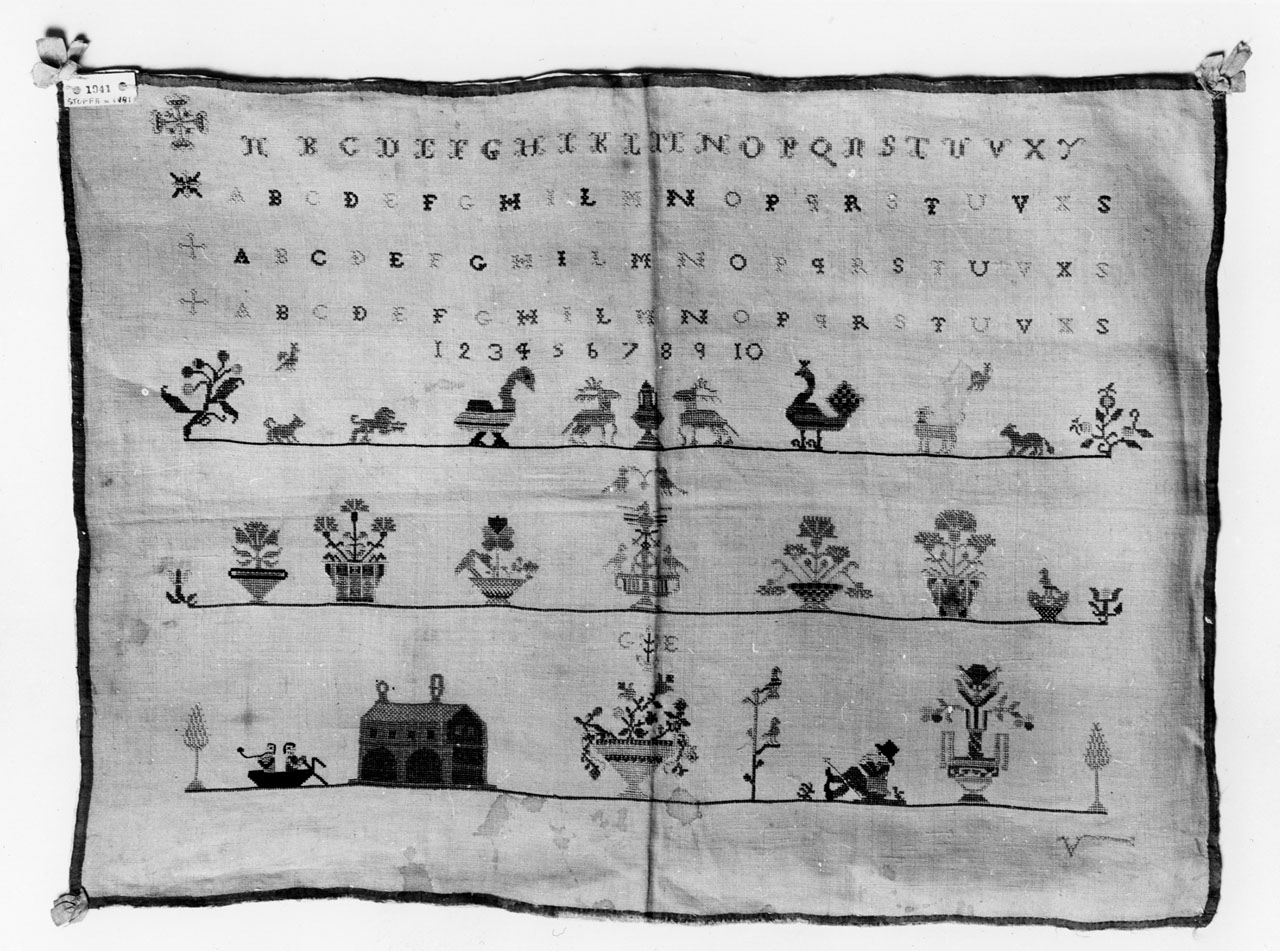 1041
STOFFE n. 1481
A B C D E F G H I K L M N O P Q R S T U V X Y
A B C D E F G H I L M N O P q R S T U V X S
A B C D E F G H I L M N O P q R S T U V X S
A B C D E F G H I L M N O P q R S T U V X S
1 2 3 4 5 6 7 8 9 10
G E
V